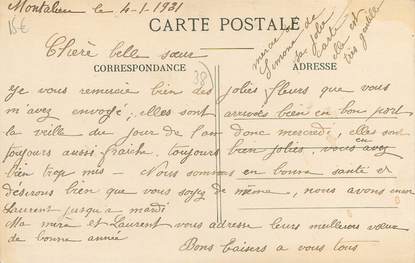 Montalieu le 4-1-1931
15€
CARTE POSTALE
Chère belle sœur
CORRESPONDANCE
ADRESSE
38
merci de
Simone de
sa jolie
carte
elle est
très gentille
Je vous remercie bien des jolies fleurs que vous
m'avez envoyé, elles sont arrivées bien en bon port
la veille du jour de l'an donc mercredi, elles sont
toujours aussi fraiche, toujours bien jolies, vous en avez
bien trop mis - Nous sommes en bonne santé et
désirons bien que vous soyez de même, nous avons
Laurent jusqu'a mardi
Ma mère et Laurent vous adresse leurs meilleurs vœux
de bonne année
Bons baisers a vous tous